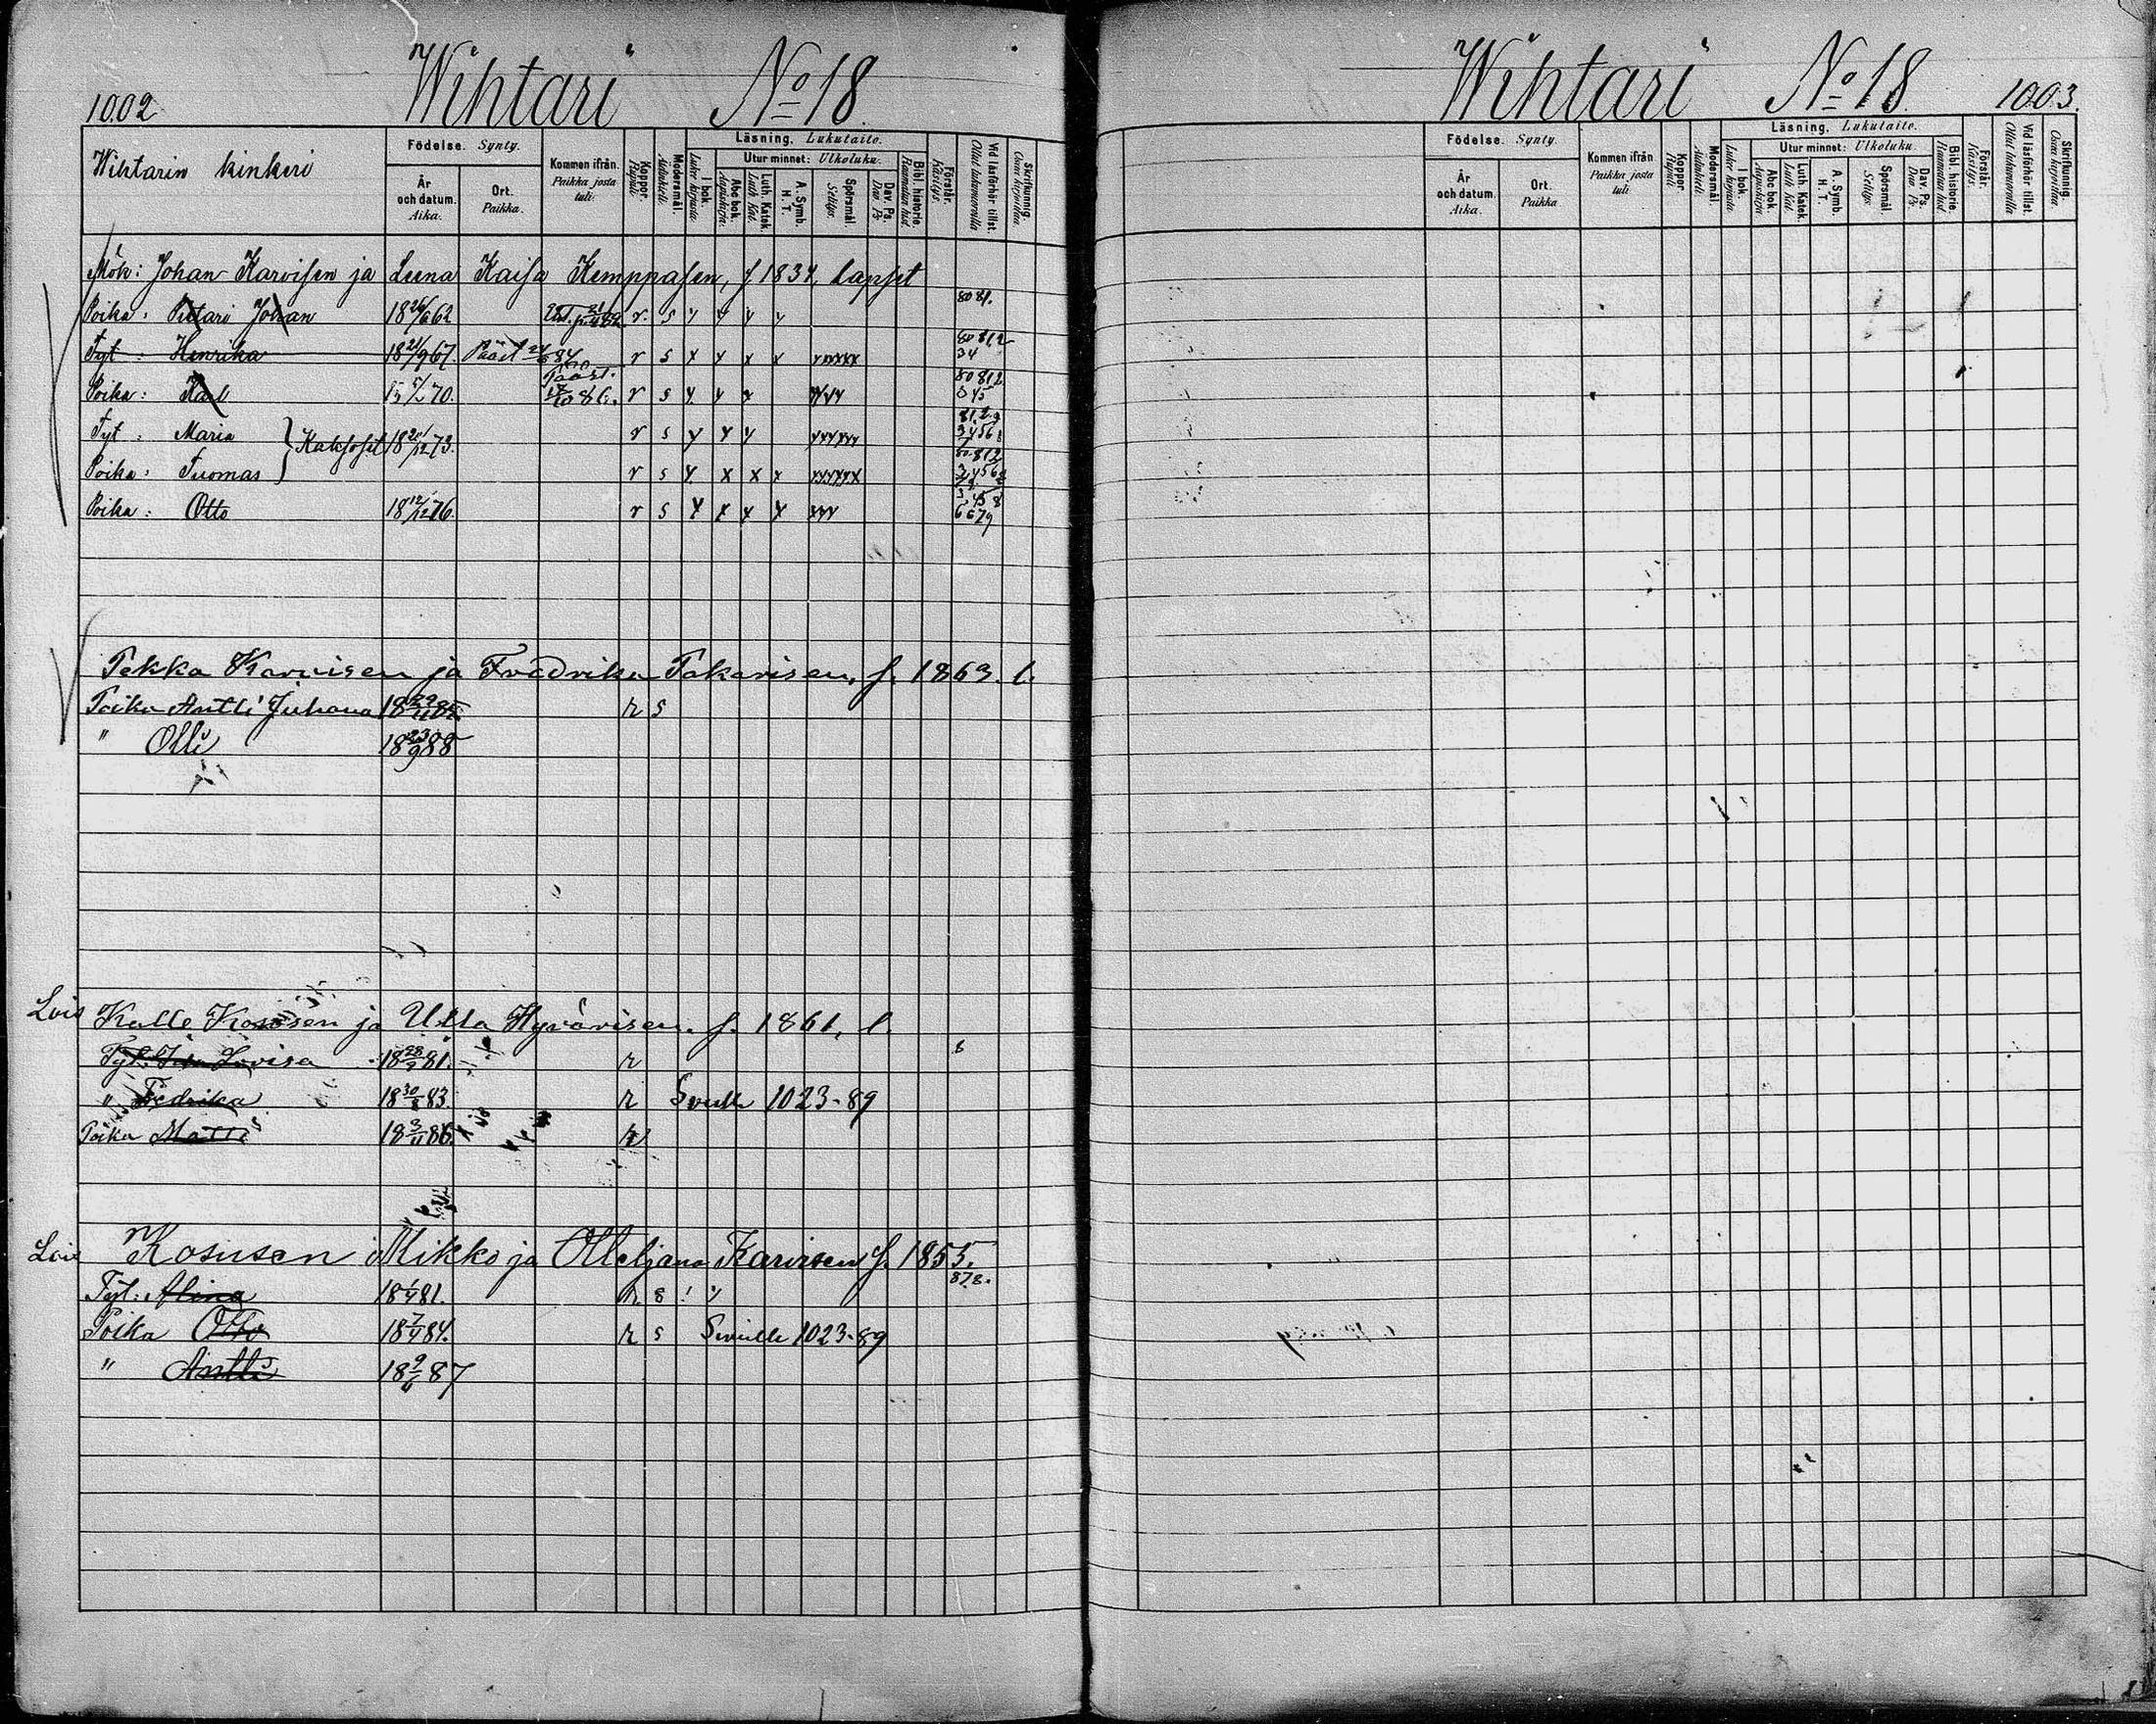 1002 "Wihtari" No 18
Wihtarin kinkeri
Födelse. Synty.
År och datum. Aika.
Ort. Paikka.
Kommen ifrån. Paikka josta tuli.
Koppor. Rupuli.
Modersmål. Äidinkieli.
Läsning. Lukutaito.
I bok. Lukee kirjasta.
Utur minnet: Ulkoluku.
Abc bok. Aapiskirja.
Luth. Katek. Luth. Kat.
A. Symb. H. T.
Spörsmål. Selitys.
Dav. Ps. Dav. Ps.
Bibl. historie. Raamatun hist.
Förstår. Käsitys.
Vid läsförhör tillst. Ollut lukuvuorolla
Skrifkunnig. Osaa kirjoittaa.
Mök: Johan Karvisen ja Leena Kaisa Kemppasen, f. 1834, lapset
Poika: Pettari Johan 18 26/6 62 r. s 80 81.
Tyt: Henrika 18 21/9 67. Pääst r s 80 812 34
Poika: Karl 70. Pääst. r s 80 812 345
Tyt: Maria } Kaksoset 18 21/12 73. r s
Poika: Tuomas } r s 80 812
Poika: Otto 18 12/12 76. r s
Pekka Karvisen ja Fredrika Pakarisen, f. 1863. l.
Poika Antti Juhana r s
" Olli 18 23/9 88
Lois Kalle Kososen ja Ulla Hyvärisen. f. 1861, l.
Tyt. Ida Lovisa 81. r 8
" Fredrika 18 30/8 83. r Sivulle 1023-89
Poika Matti 18 3/11 86 r
Lois Kososen Mikko ja Karvisen f. 1855.
Tyt: Alina 81. r. s 878.
Poika Otto 84. r s Sivulle 1023-89
" Antti 87
"Wihtari" No 18. 1003.
Födelse. Synty.
År och datum. Aika.
Ort. Paikka
Kommen ifrån. Paikka josta tuli.
Koppor. Rupuli
Modersmål. Äidinkieli.
Läsning. Lukutaito.
I bok. Lukee kirjasta
Utur minnet: Ulkoluku.
Abc bok. Aapiskirja.
Luth. Katek. Luth. Kat.
A. Symb. H. T.
Spörsmål. Selitys.
Dav. Ps. Dav. Ps.
Bibl. historie. Raamatun hist.
Förstår. Käsitys.
Vid läsförhör tillst. Ollut lukuvuorolla
Skrifkunnig. Osaa kirjoittaa